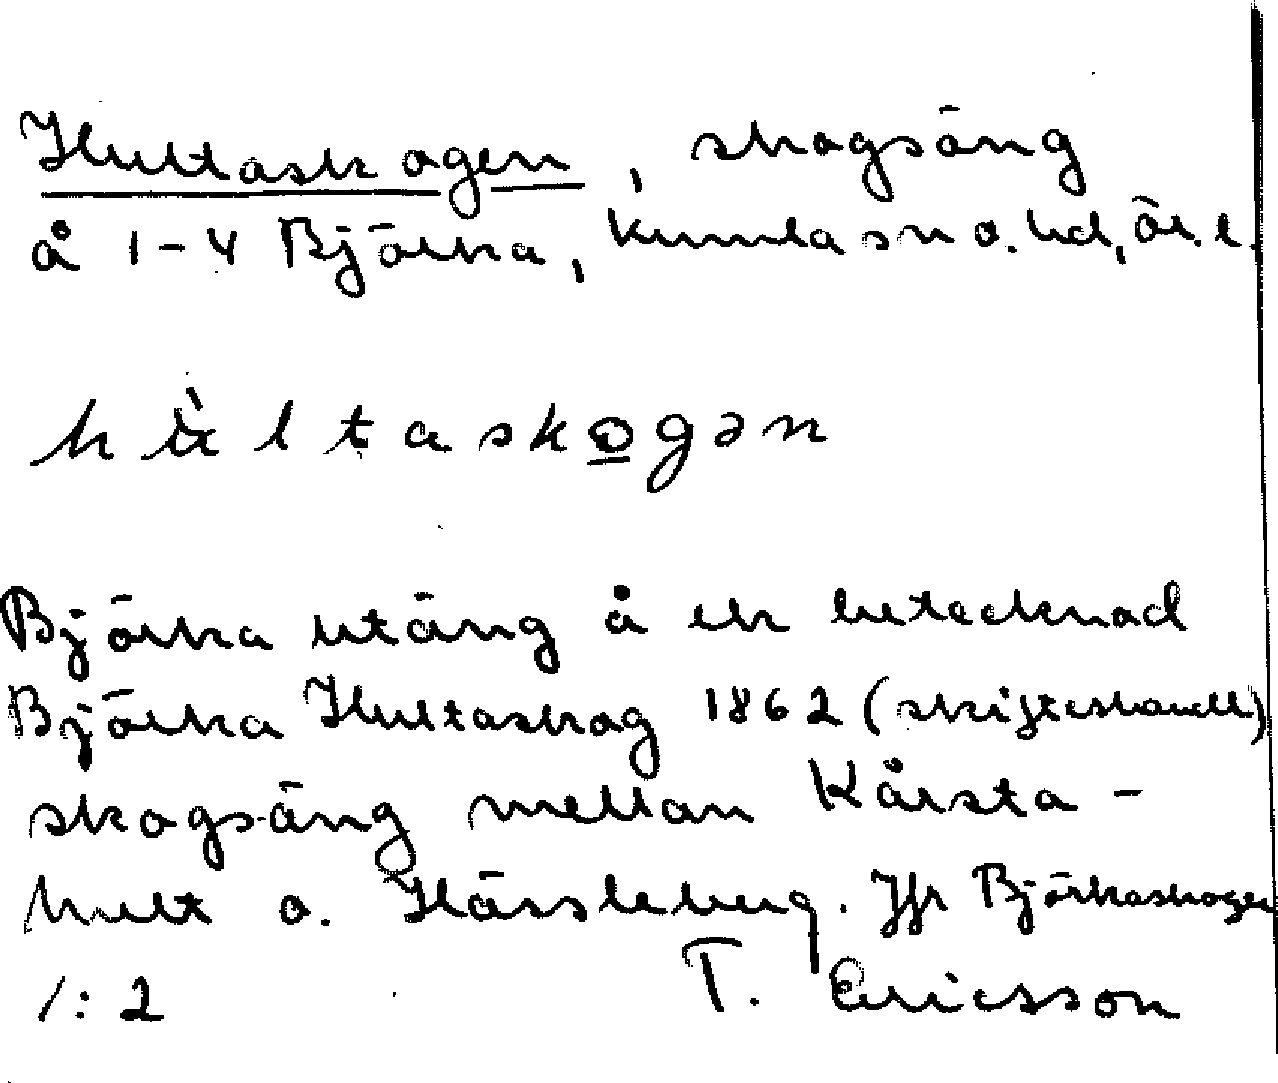 Hultaskogen, skogsäng
å 1-4 Björka, Kumla sn o. hd, Ör. l.
hùltaskogən
Björka utäng å ek betecknad
Björka Hultaskog 1862 (skifteshandl)
skogsäng mellan Kårsta-
hult o. Hässleberg. Jfr Björkaskogen
/: 2 T. Ericsson